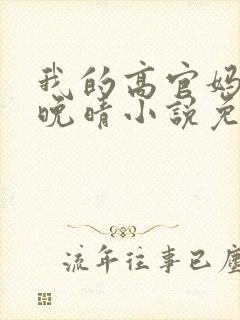 我的高官妈
晚晴小说免
流年往事已尘